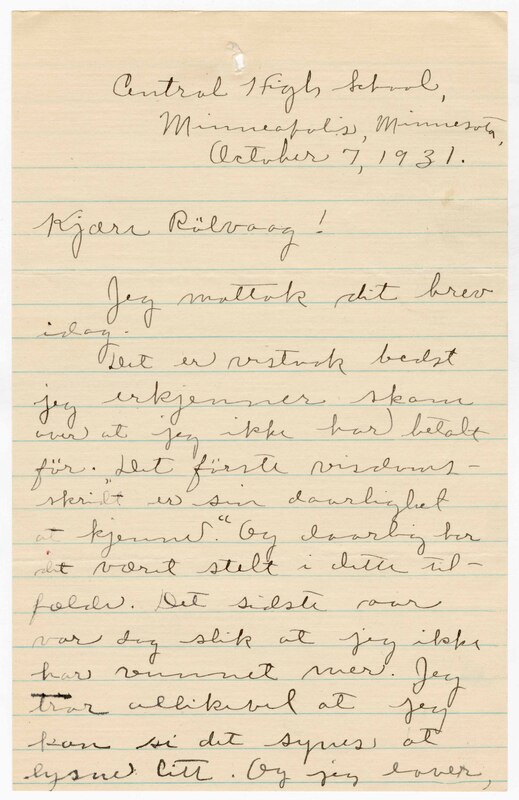 Central High School,
Minneapolis, Minnesota,
October 7, 1931.
Kjære Rölvaag!
Jeg mottok dit brev
idag.
Det er vistnok bedst
jeg erkjenner skam
over at jeg ikke har betalt
för. "Det förste visdoms-
skridt er sin daarlighet
at kjende." Og daarlig har
det været stelt i dette til-
fælde. Det sidste aar
var dog slik at jeg ikke
har vunnet mer. Jeg
tror allikevel at jeg
kan si det synes at
lysne litt. Og jeg lover,